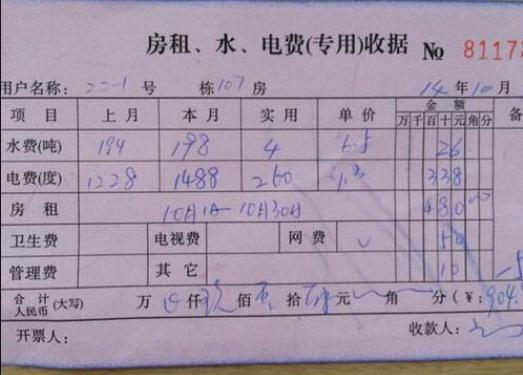 房租、水、电费(专用)收据 № 81173
用户名称: 22-1 号 栋107 房 14 年 10 月
项 目 上 月 本 月 实 用 单 价 金 额 备
万 千 百 十 元 角 分
水费(吨) 194 198 4 6.5 26
电费(度) 1228 1488 260 1.3 338
房 租 10月1日—10月30日 480 00
卫生费 电视费 网 费 50
管理费 其 它 10
合 计 人民币 (大写) 万 仟 玖 佰 拾 元 角 分 (¥: 904.
开票人: 收款人: